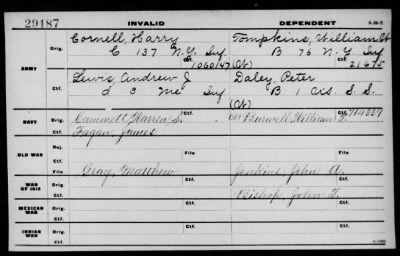 29187 INVALID DEPENDENT 3-16-2
ARMY Orig. Cornell, Harry Tompkins, William H
C 137 N.Y. Inf B 76 N.Y. Inf
1060147 (Ct) 21675
Ctf. Lewis, Andrew J Daley, Peter
d 3 Me Inf B 1 Cis. S. S.
(Ct)
NAVY Orig. Cammett, Warren S. Burwell, William
Ctf. Fagan, James
OLD WAR Rej.
File File
Gray, Matthew Jenkins, John A.
WAR OF 1812 Orig. Bishop, John T.
Ctf.
MEXICAN WAR Orig.
Ctf.
INDIAN WAR Orig.
Ctf.